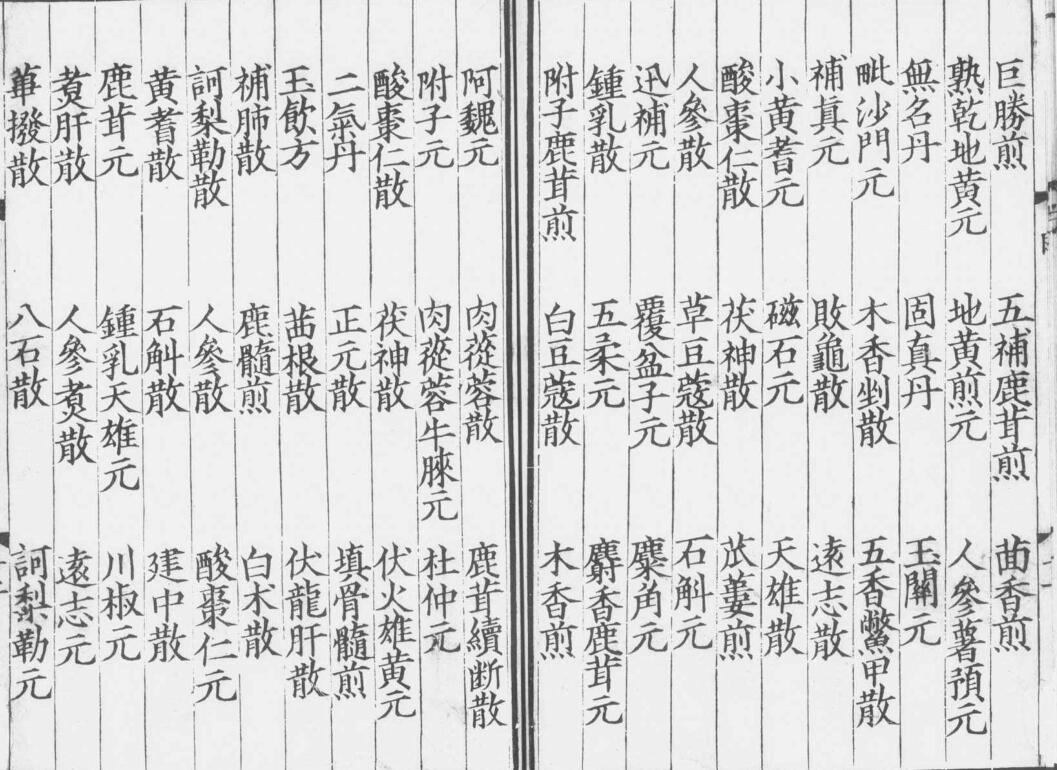 巨勝煎　五補鹿茸煎　茴香煎
熟乾地黄元　地黄煎元　人參薯預元
無名丹　固真丹　玉關元
毗沙門元　木香剉散　五香鱉甲散
補真元　敗龜散　遠志散
小黄耆元　磁石元　天雄散
酸棗仁散　茯神散　苽蔞煎
人參散　草豆蔻散　石斛元
迅補元　覆盆子元　麋角元
鍾乳散　五柔元　麝香鹿茸元
附子鹿茸煎　白豆蔻散　木香煎
阿魏元　肉蓯蓉散　鹿茸續断散
附子元　肉蓯蓉牛膝元　杜仲元
酸棗仁散　茯神散　伏火雄黄元
二氣丹　正元散　填骨髓煎
玉飲方　茜根散　伏龍肝散
補肺散　鹿髓煎　白术散
訶梨勒散　人參散　酸棗仁元
黄耆散　石斛散　建中散
鹿茸元　鍾乳天雄元　川椒元
煑肝散　人參煑散　遠志元
蓽撥散　八石散　訶梨勒元